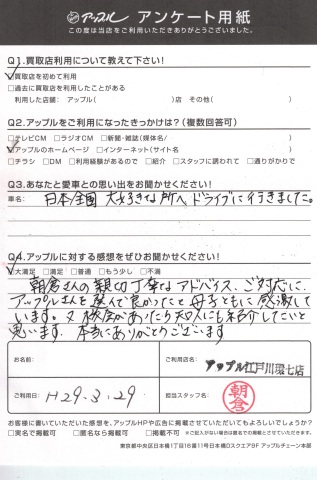 アップル アンケート用紙
この度は当店をご利用いただきありがとうございました。
Q1.買取店利用について教えて下さい!
☑買取店を初めて利用
□過去に買取店を利用したことがある
利用した店舗: アップル( )店 その他( )
Q2.アップルをご利用になったきっかけは?(複数回答可)
□テレビCM □ラジオCM □新聞・雑誌(媒体名/ )
☑アップルのホームページ □インターネット(サイト名 )
□チラシ □DM □利用経験があるので □紹介 □スタッフに誘われて □通りがかりで
Q3.あなたと愛車との思い出をお聞かせください!
車名: 日本全国 大好きな所へ ドライブに行きました。
Q4.アップルに対する感想をぜひお聞かせください!
☑大満足 □満足 □普通 □もう少し □不満
朝倉さんの親切丁寧なアドバイス、ご対応に、
アップルさんを選んで良かったこと母子ともに感激して
います。又機会があったら知人にも紹介したいと
思います。本当にありがとうございます
お名前:
ご利用店名: アップル江戸川環七店
ご利用日: H29.3.29
担当スタッフ名: 朝倉
お客様に書いていただいた感想を、アップルHPや広告に掲載させていただいてもよろしいでしょうか?
□実名に掲載可 □匿名なら掲載可 □掲載不可 ※ご記入がない場合は匿名での掲載とさせていただきます。
東京都中央区日本橋1丁目16番11号日本橋Dスクエア9F アップルチェーン本部